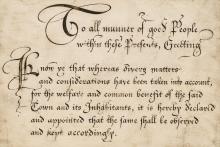 To all manner of good People
within these Presents, Greeting
Know ye that whereas Every matters
and considerations have been taken into account,
for the welfare and common benefit of the said
Town and its Inhabitants, it is hereby declared
and appointed that the same shall be observed
and kept accordingly.